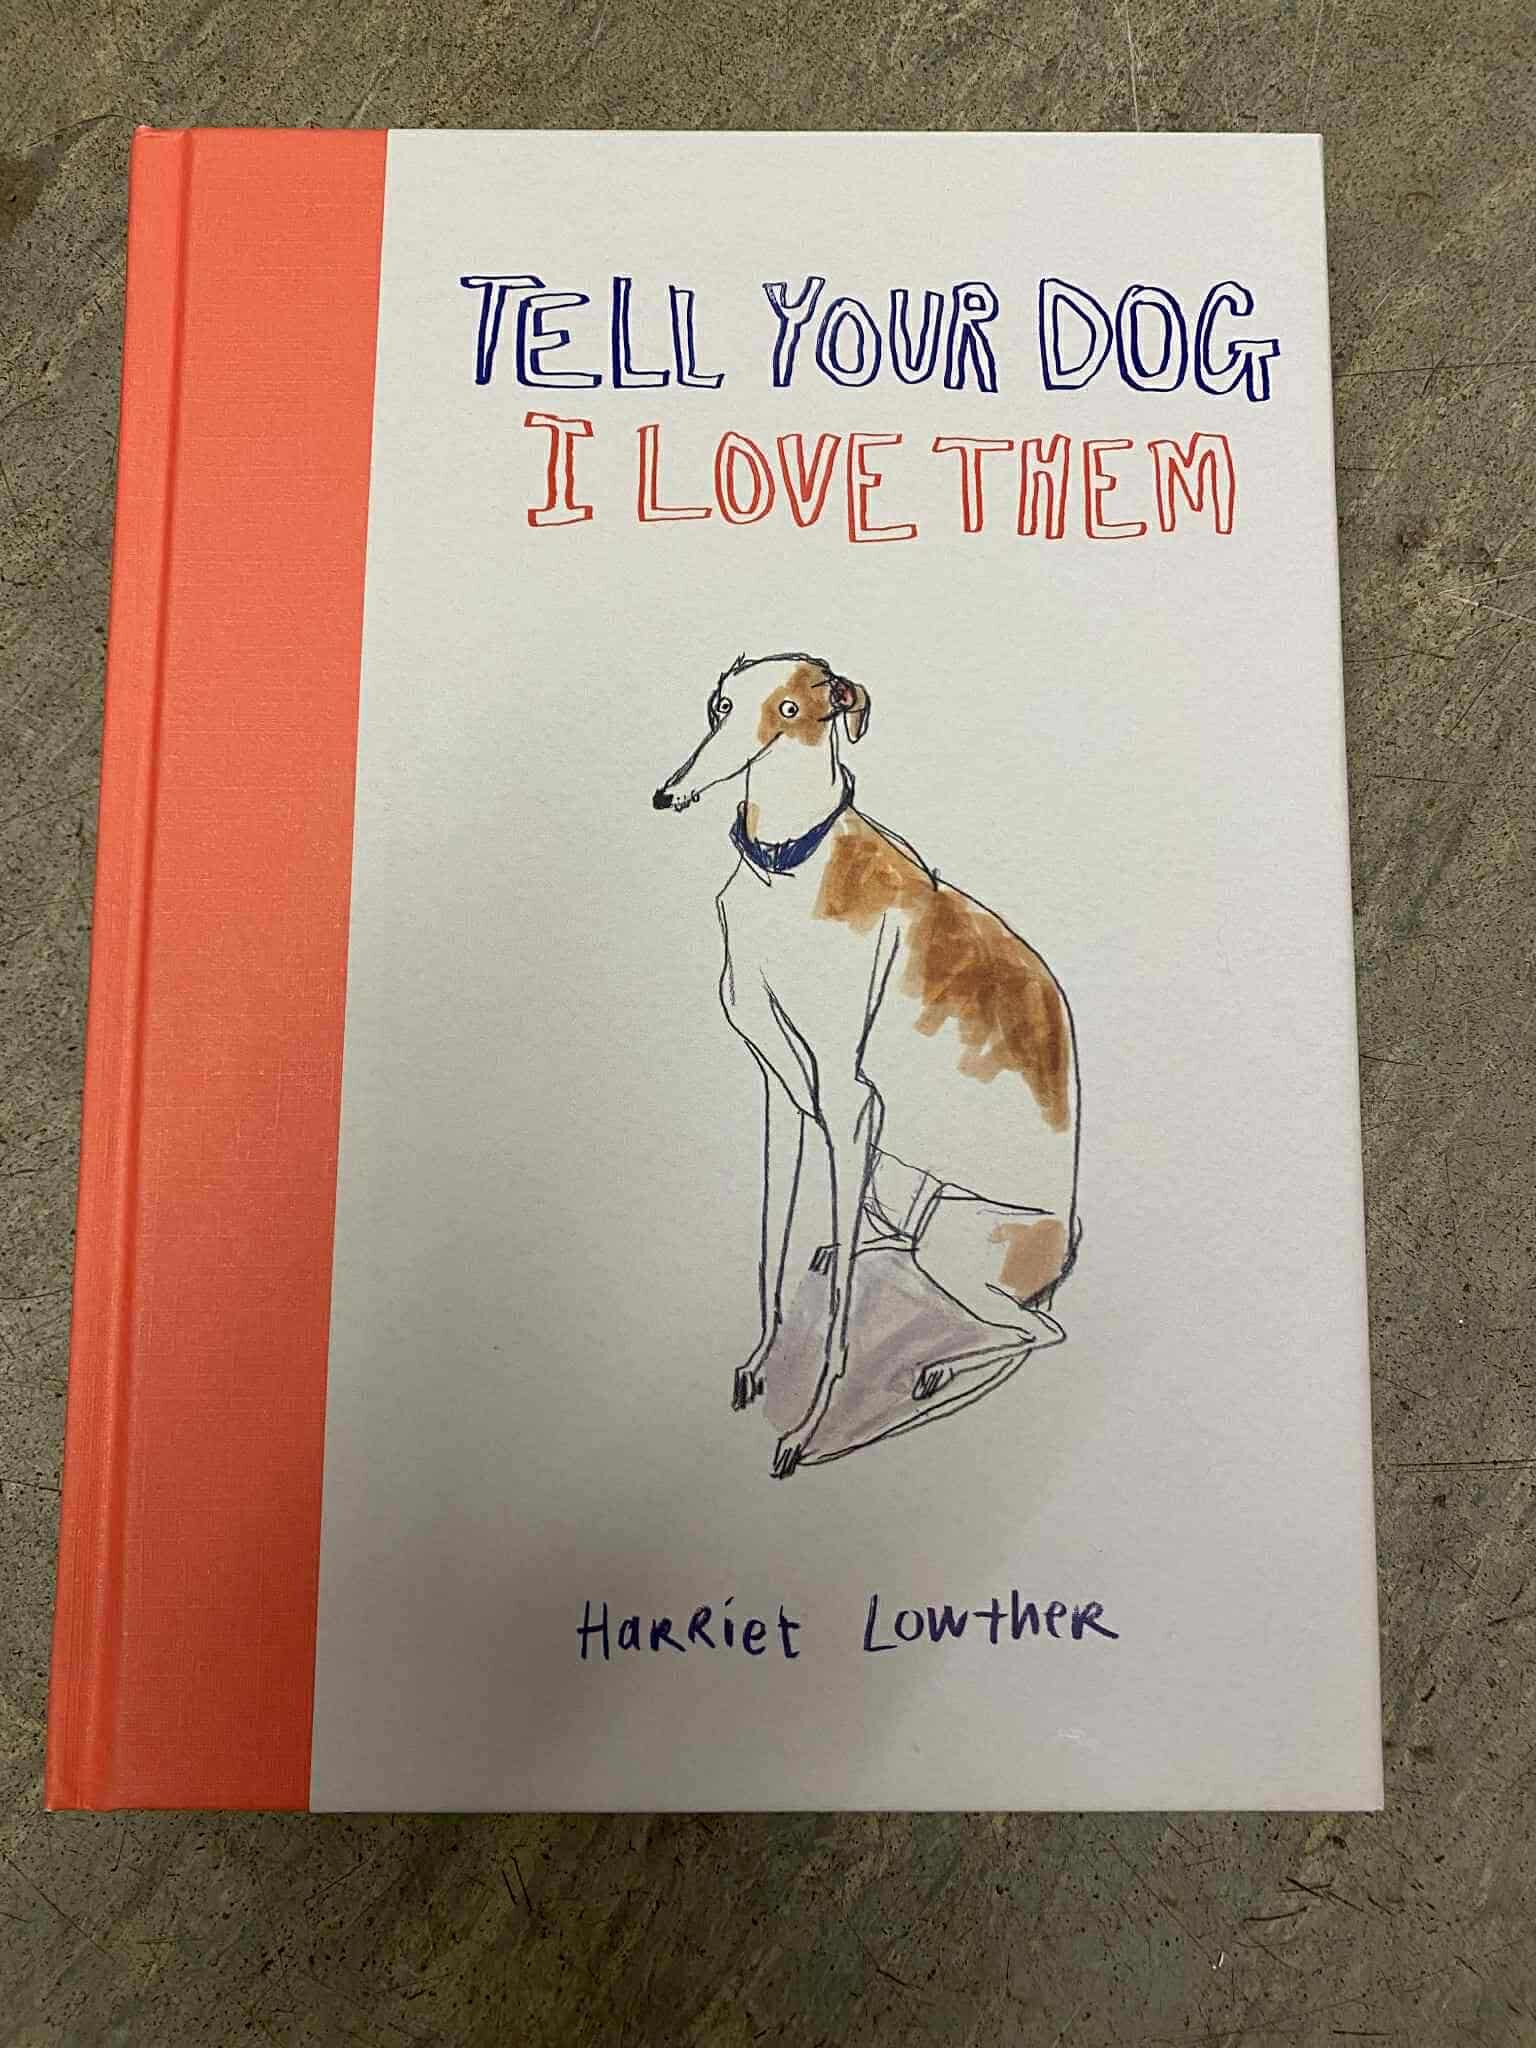 TELL YOUR DOG
I LOVE THEM
Harriet Lowther